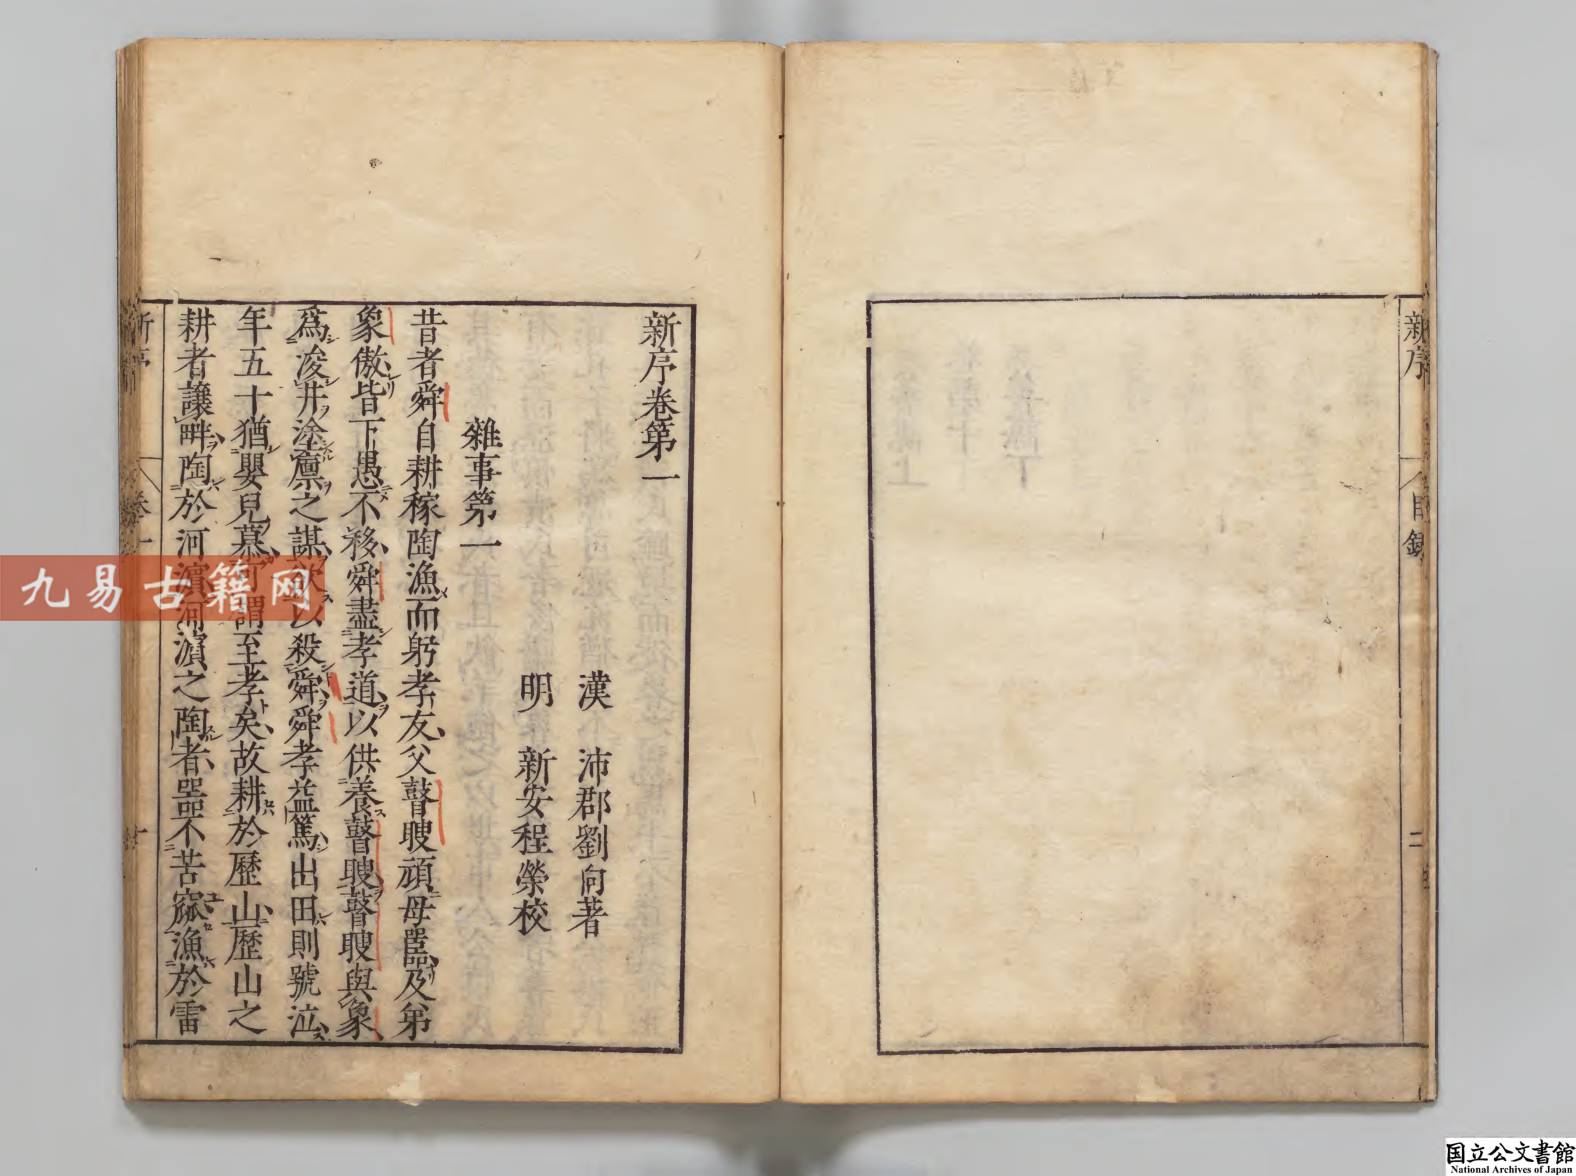 新序
目録
二
新序卷第一
漢 沛郡劉向著
明 新安程榮校
雜事第一
昔者舜自耕稼陶漁而躬孝友父瞽瞍頑母嚚及弟
象傲皆下愚不移舜盡孝道以供養瞽瞍瞽瞍與象
爲浚井塗廩之謀欲以殺舜舜孝益篤出田則號泣
年五十猶嬰兒慕可謂至孝矣故耕於歷山歷山之
耕者讓畔陶於河濱河濱之陶者器不苦窳漁於雷
新序
卷一
九易古籍网
国立公文書館
National Archives of Japan